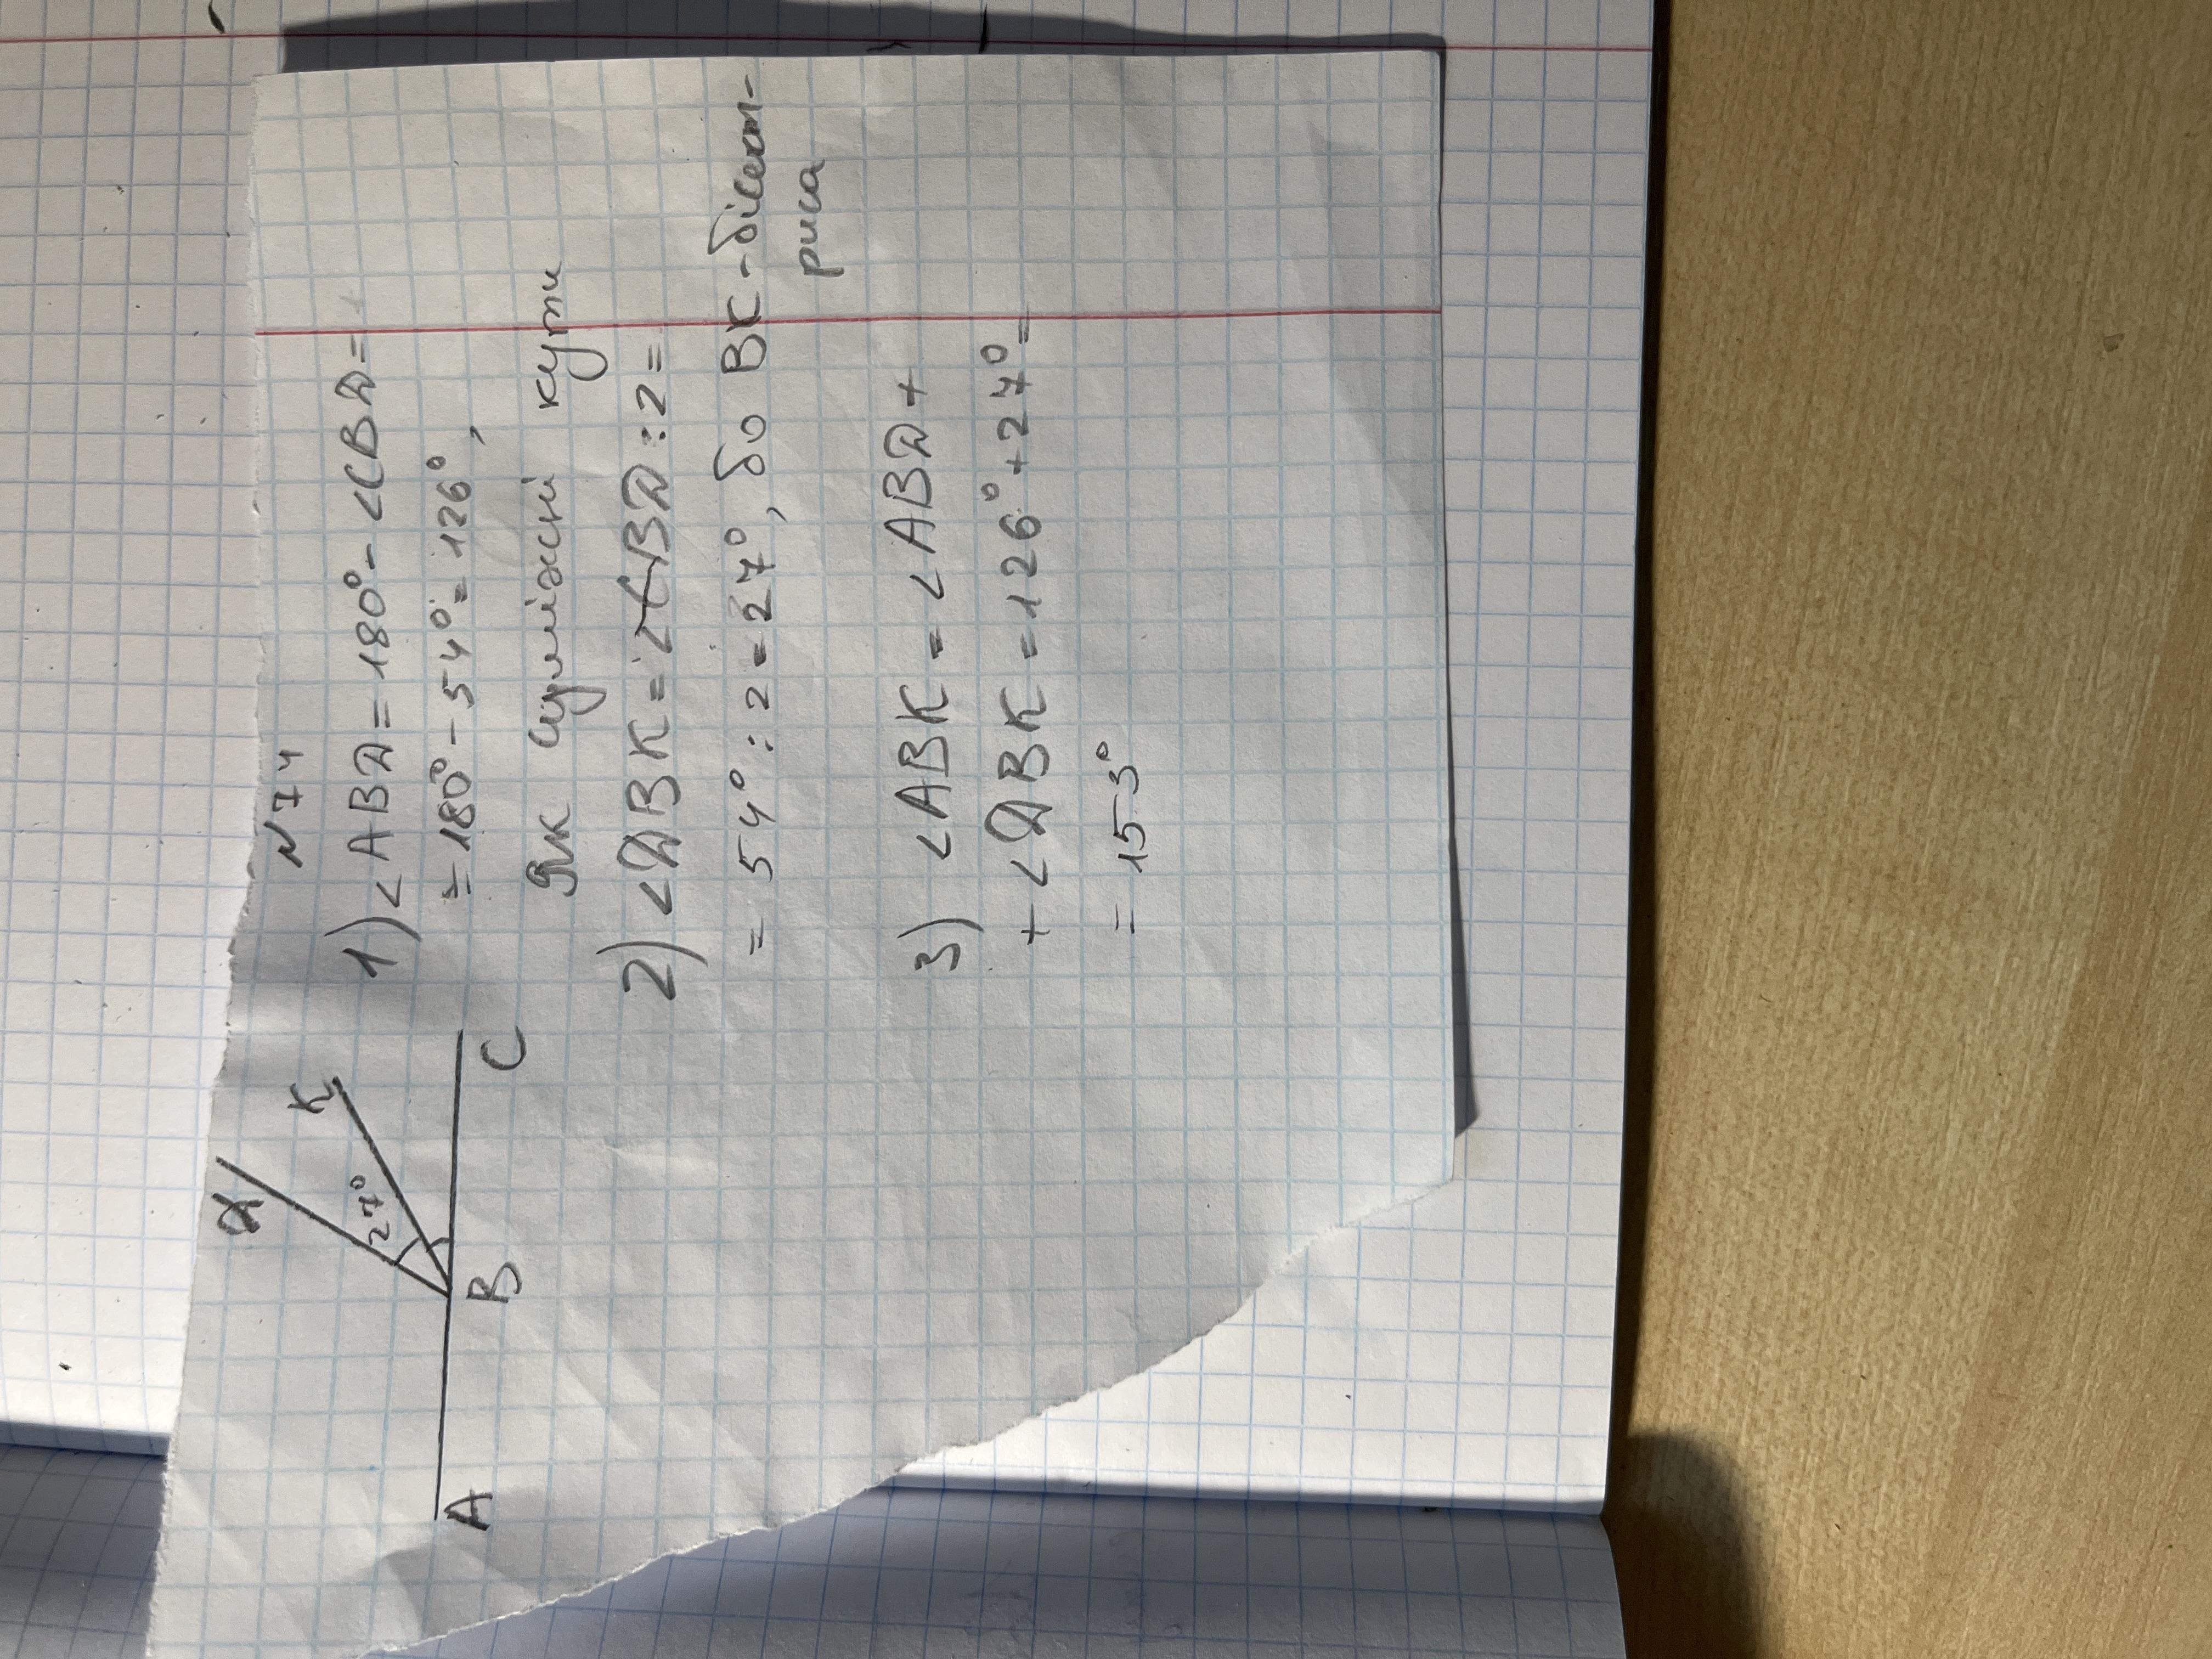 N 74
Д
K
27°
A
B
C
1) <ABД = 180° - <CBД =
= 180° - 54° = 126°,
Як суміжні кути
2) <ДBK = <CBД : 2 =
= 54° : 2 = 27°, бо BK - бісект-
риса
3) <ABK = <ABД +
+ <ДBK = 126° + 27° =
= 153°